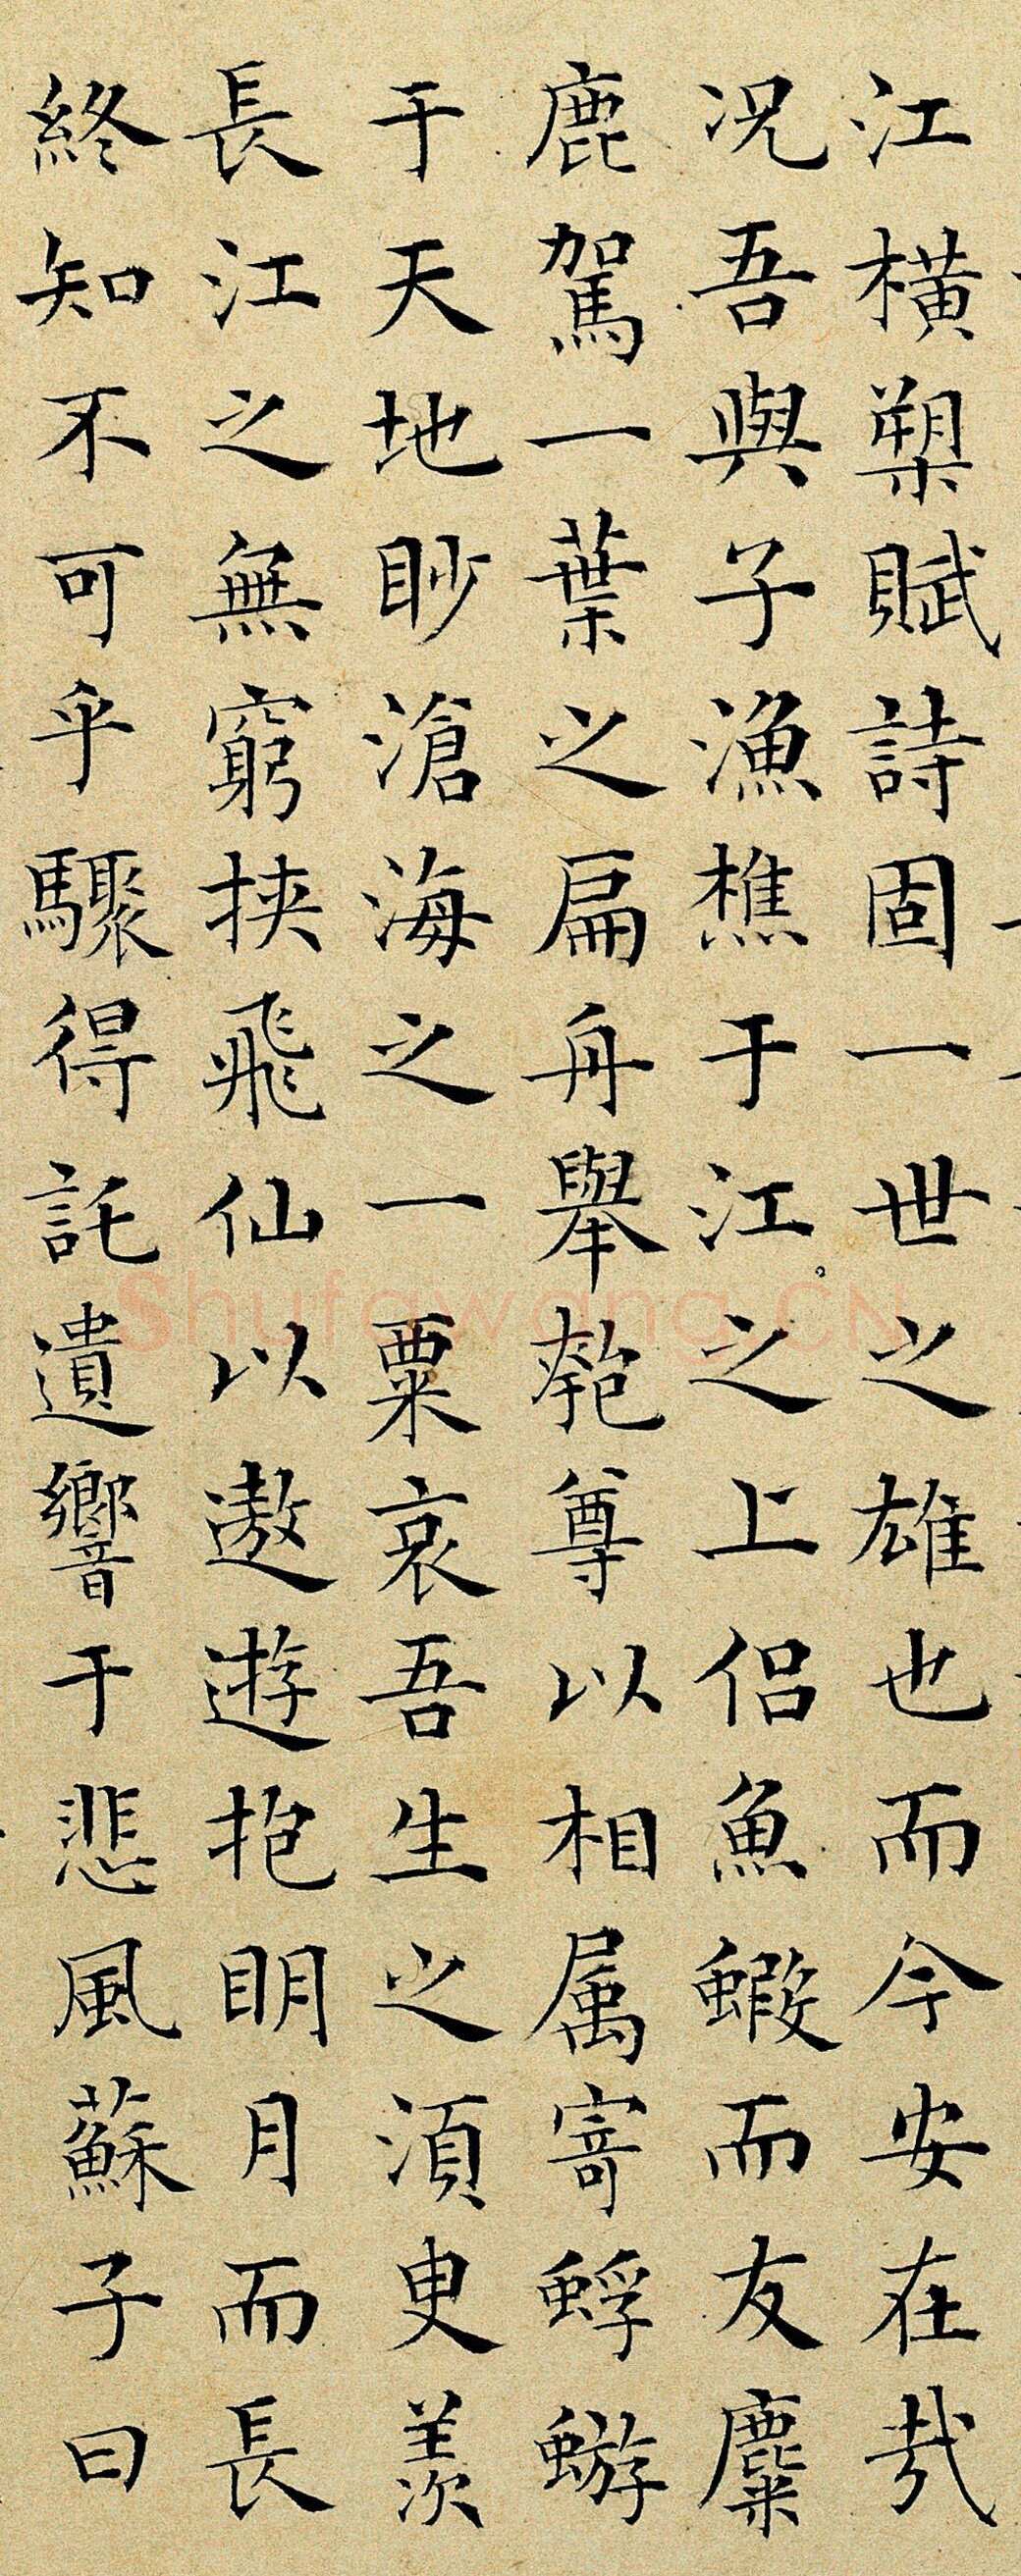 江横槊賦詩固一世之雄也而今安在哉
况吾與子漁樵于江之上侣魚蝦而友麋
鹿駕一葉之扁舟舉匏尊以相属寄蜉蝣
于天地眇滄海之一粟哀吾生之湏臾羨
長江之無窮挟飛仙以遨遊抱眀月而長
終知不可乎驟得託遺響于悲風蘇子曰
Shufawang.CN